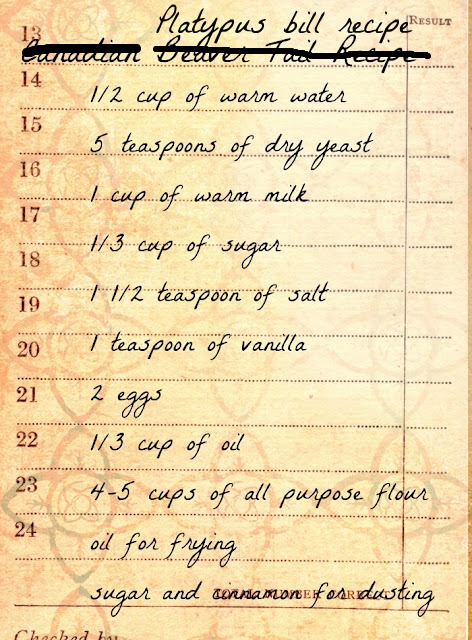 Platypus bill recipe
RESULT
13
Canadian Beaver Tail Recipe
14
1/2 cup of warm water
15
5 teaspoons of dry yeast
16
1 cup of warm milk
17
1/3 cup of sugar
18
1 1/2 teaspoon of salt
19
1 teaspoon of vanilla
20
2 eggs
21
1/3 cup of oil
22
4-5 cups of all purpose flour
23
24
oil for frying
sugar and cinnamon for dusting
Checked by